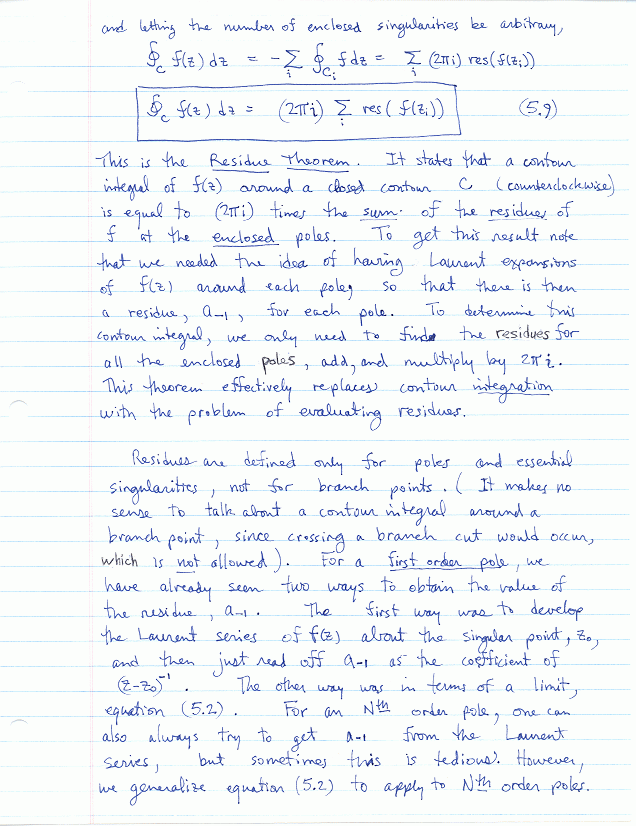 and letting the number of enclosed singularities be arbitrary,
∮_C f(z) dz = -∑_i ∮_{C_i} f dz = ∑_i (2πi) res(f(z_i))
∮_C f(z) dz = (2πi) ∑_i res( f(z_i)) (5.9)
This is the Residue Theorem. It states that a contour
integral of f(z) around a closed contour C (counterclockwise)
is equal to (2πi) times the sum of the residues of
f at the enclosed poles. To get this result note
that we needed the idea of having Laurent expansions
of f(z) around each pole, so that there is then
a residue, a_{-1}, for each pole. To determine this
contour integral, we only need to find the residues for
all the enclosed poles, add, and multiply by 2πi.
This theorem effectively replaces contour integration
with the problem of evaluating residues.
Residues are defined only for poles and essential
singularities, not for branch points. (It makes no
sense to talk about a contour integral around a
branch point, since crossing a branch cut would occur,
which is not allowed). For a first order pole, we
have already seen two ways to obtain the value of
the residue, a_{-1}. The first way was to develop
the Laurent series of f(z) about the singular point, z_0,
and then just read off a_{-1} as the coefficient of
(z-z_0)^{-1}. The other way was in terms of a limit,
equation (5.2). For an Nth order pole, one can
also always try to get a_{-1} from the Laurent
series, but sometimes this is tedious. However,
we generalize equation (5.2) to apply to Nth order poles.